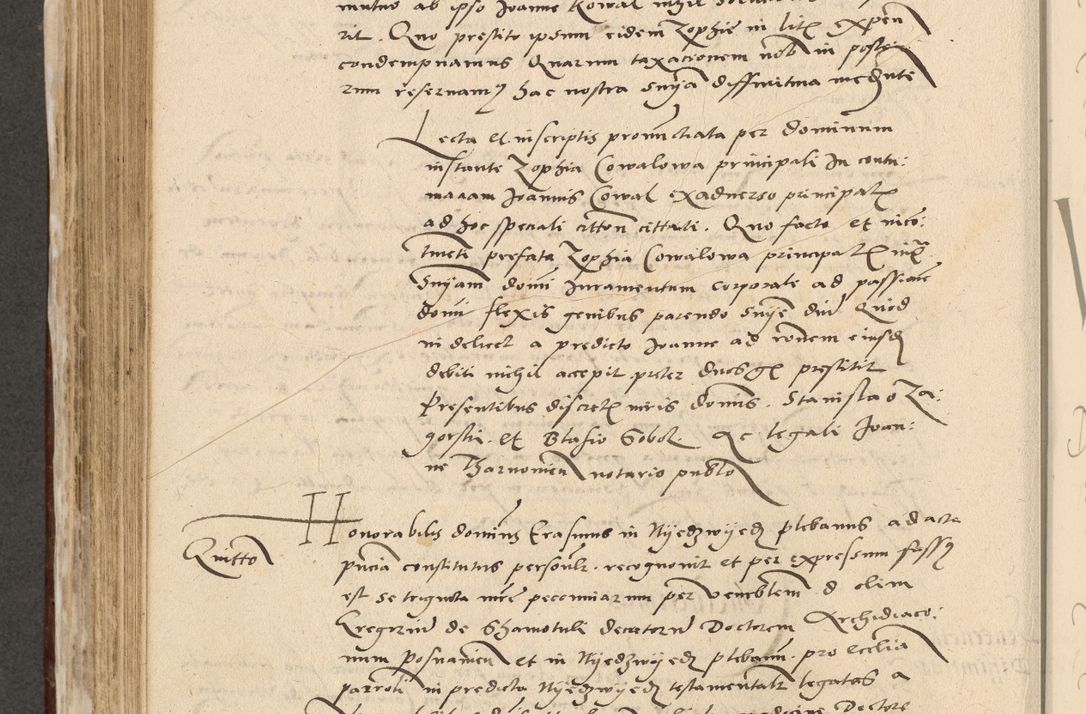 mutuo ab ipso Joanne Kowal nihil
rit. Quo prestito ipsum eidem Zophie in litis expen
condempnamus Quarum taxacionem nob in poste
rum reservamus hac nostra snia diffinitiva mediante
Lecta et in scriptis pronunctiata per dominum
instante Zophia Cowalowa principali In contu:
maciam Joannis Cowal exadverso principalis
ad hoc speciali citton cittati. Quo facto et in co:
prefata Zophia Cowalowa principalis iux
Sniam domi Juramentum corporale ad passione
domi flexis genibus parendo Snie dni Quod
videlicet a predicto Joanne ad ronem eiusd
debiti nichil accepit preter duos gr prestitit
Presentibus discretis viris dominis. Stanislao Za:
gorski. et Blasio Sobol Ac legali Joan:
ne Tharnowien notario publo
Quitto
Honorabilis dominus Erasmus in Nyedzwyedz plebanus ad acta
pncia constitutus personlr. recognovit et per expressum fassus
est se triginta mrc pecuniarum per venerblem d olem
Gregorium de Shamotuli decretorum Doctorem Archidiaco:
num Posnanien et in Nyedzwyedz plebanum. pro ecclia
parroli in predicta Nyedzwyedz testamentalr legatas a
medicine Doctore